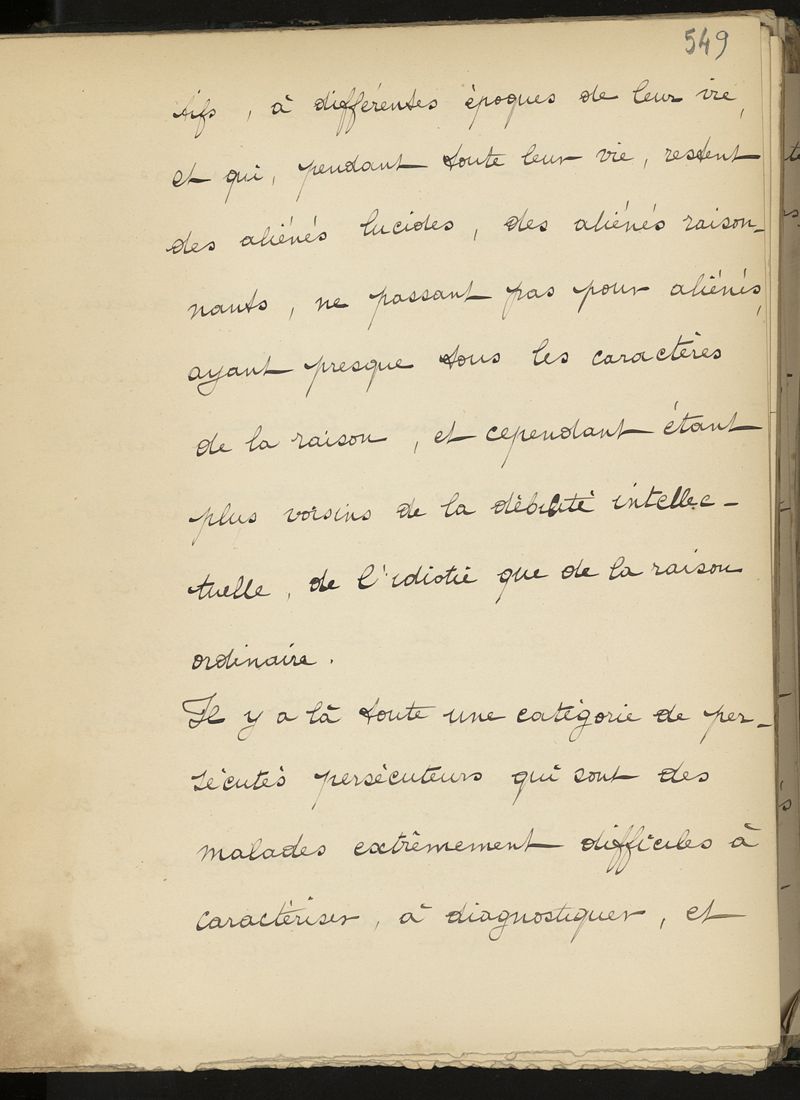 549
tifs, à différentes époques de leur vie,
et qui, pendant toute leur vie, restent
des aliénés lucides, des aliénés raison-
nants, ne passant pas pour aliénés,
ayant presque tous les caractères
de la raison, et cependant étant
plus voisins de la débilité intellec-
tuelle, de l'idiotie que de la raison
ordinaire.
Il y a là toute une catégorie de per-
sécutés persécuteurs qui sont des
malades extrêmement difficiles à
caractériser, à diagnostiquer, et